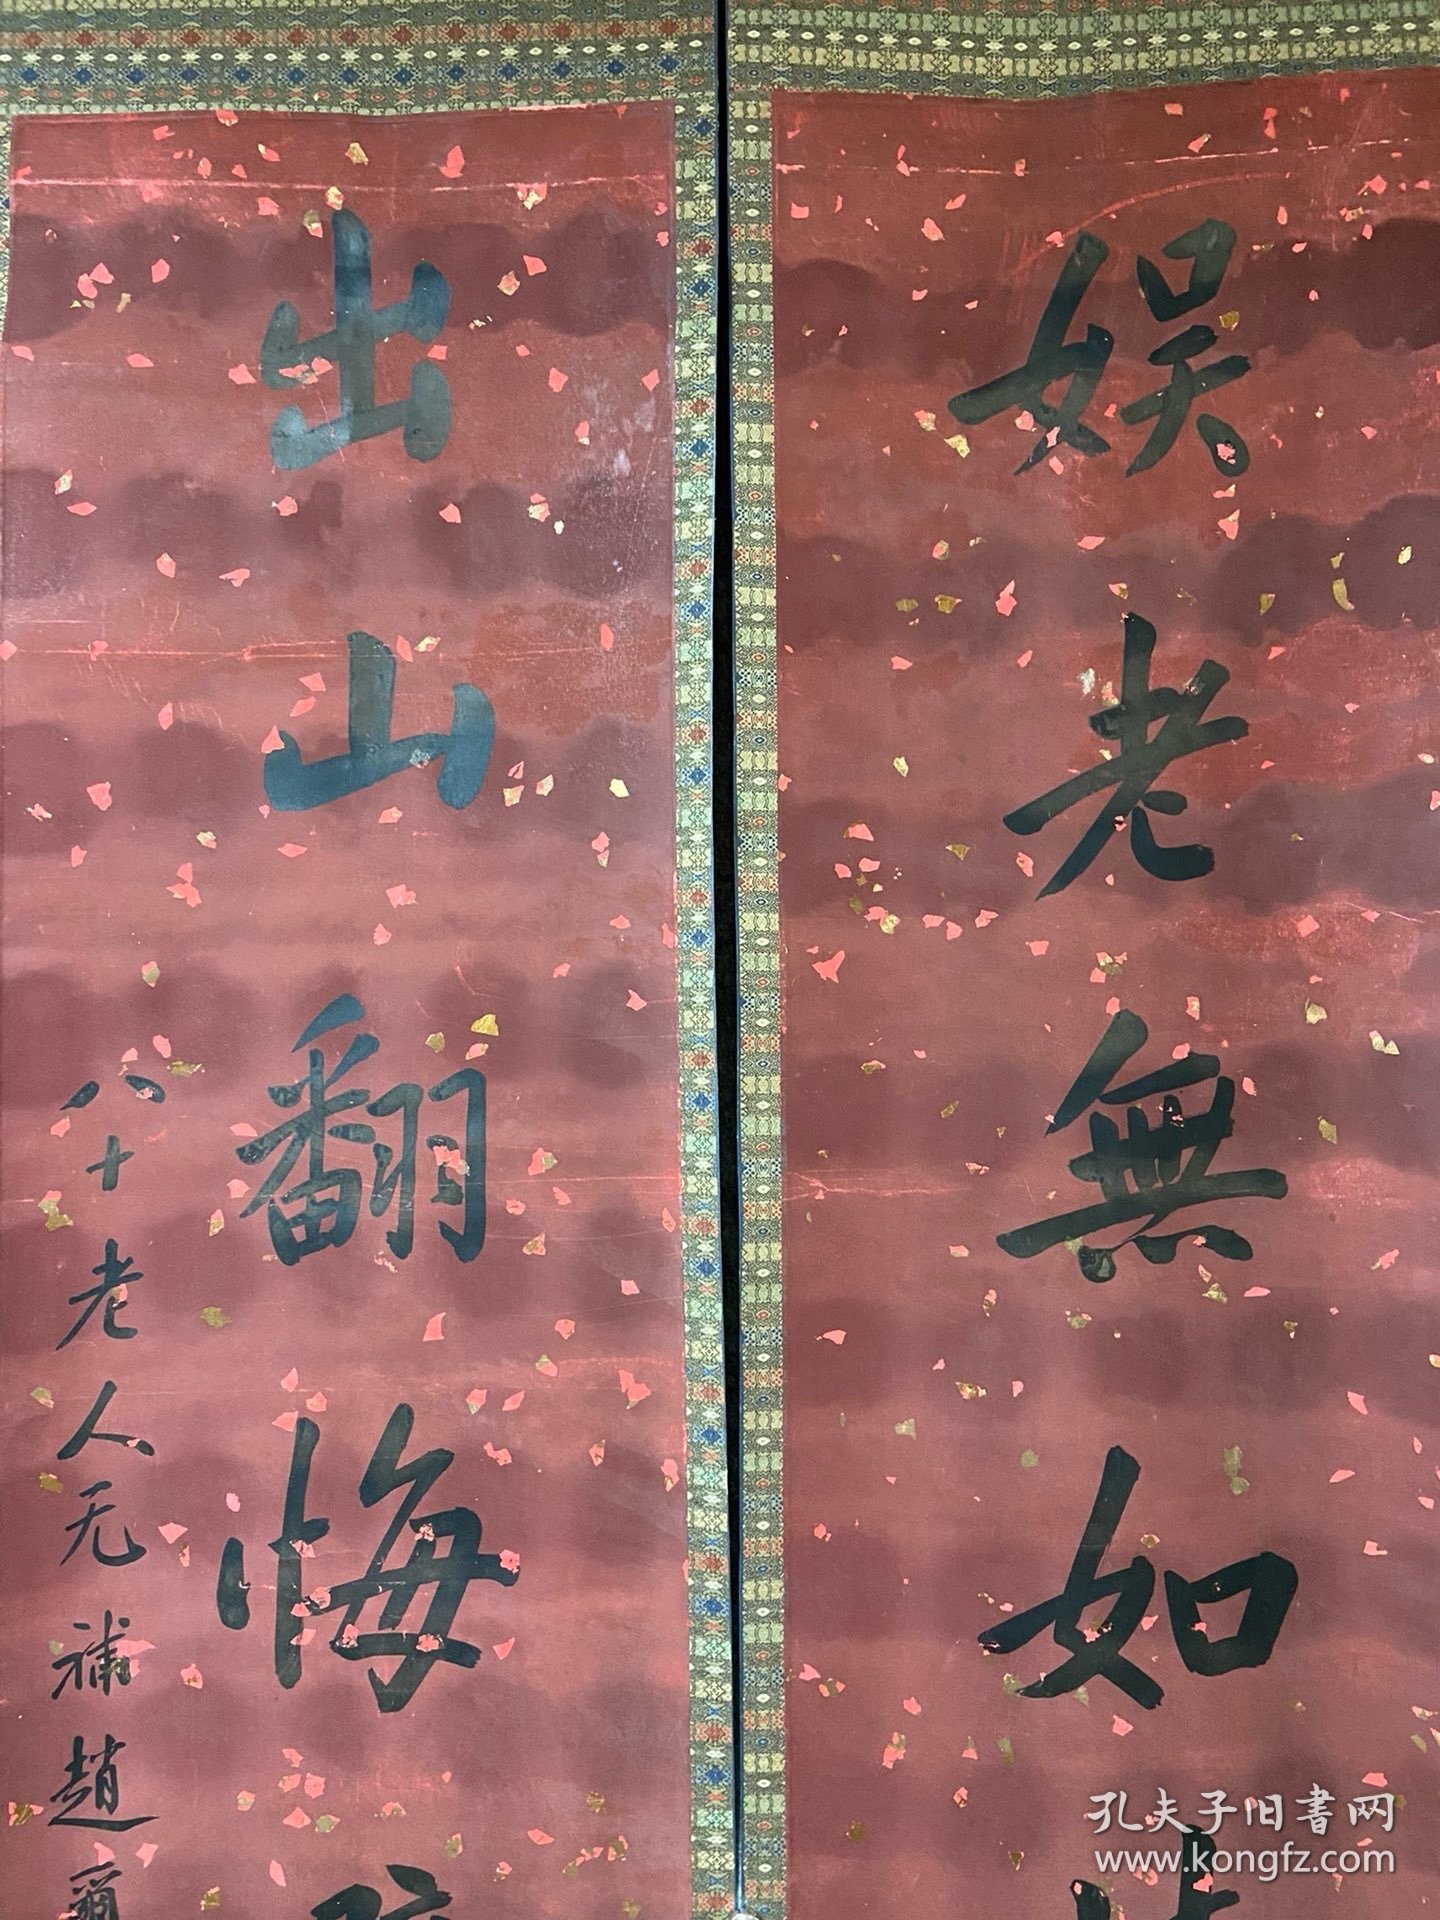 娱老無如
出山翻悔
八十老人无補趙爾
孔夫子旧書网
www.kongfz.com